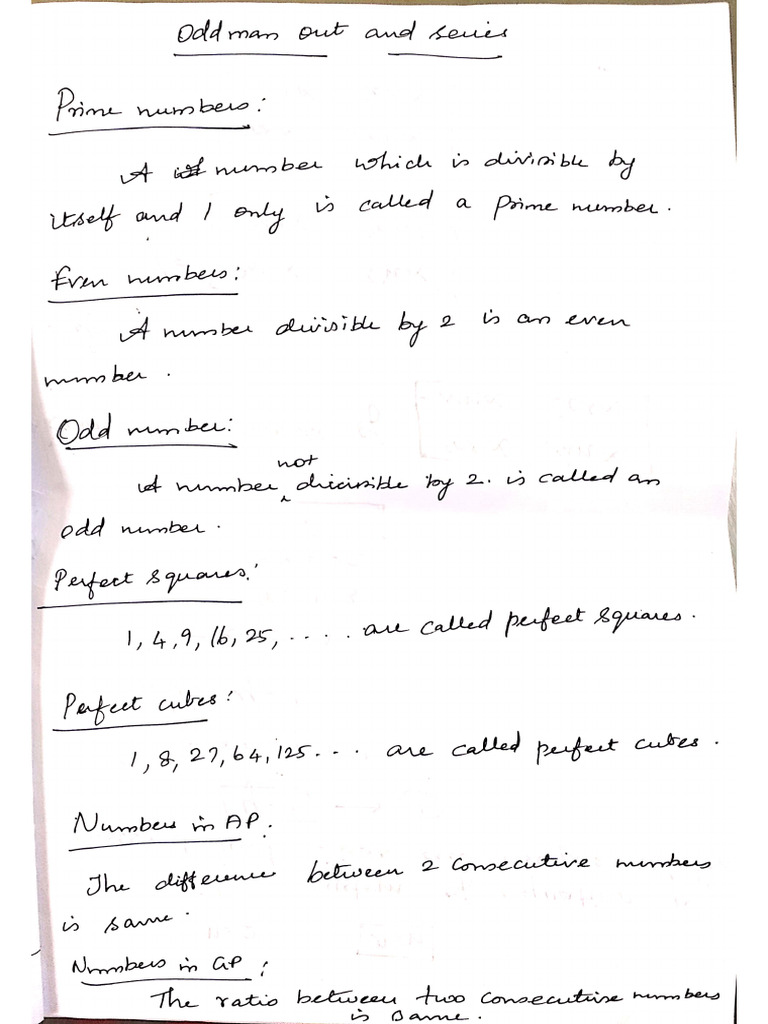 Oddman out and series
Prime numbers:
A number which is divisible by
itself and 1 only is called a prime number.
Even numbers:
A number divisible by 2 is an even
number.
Odd number:
not
A number divisible by 2. is called an
odd number.
Perfect squares:
1, 4, 9, 16, 25, .... are called perfect squares.
Perfect cubes:
1, 8, 27, 64, 125... are called perfect cubes.
Numbers in AP.
The difference between 2 consecutive numbers
is same.
Numbers in GP:
The ratio between two consecutive numbers
is same.